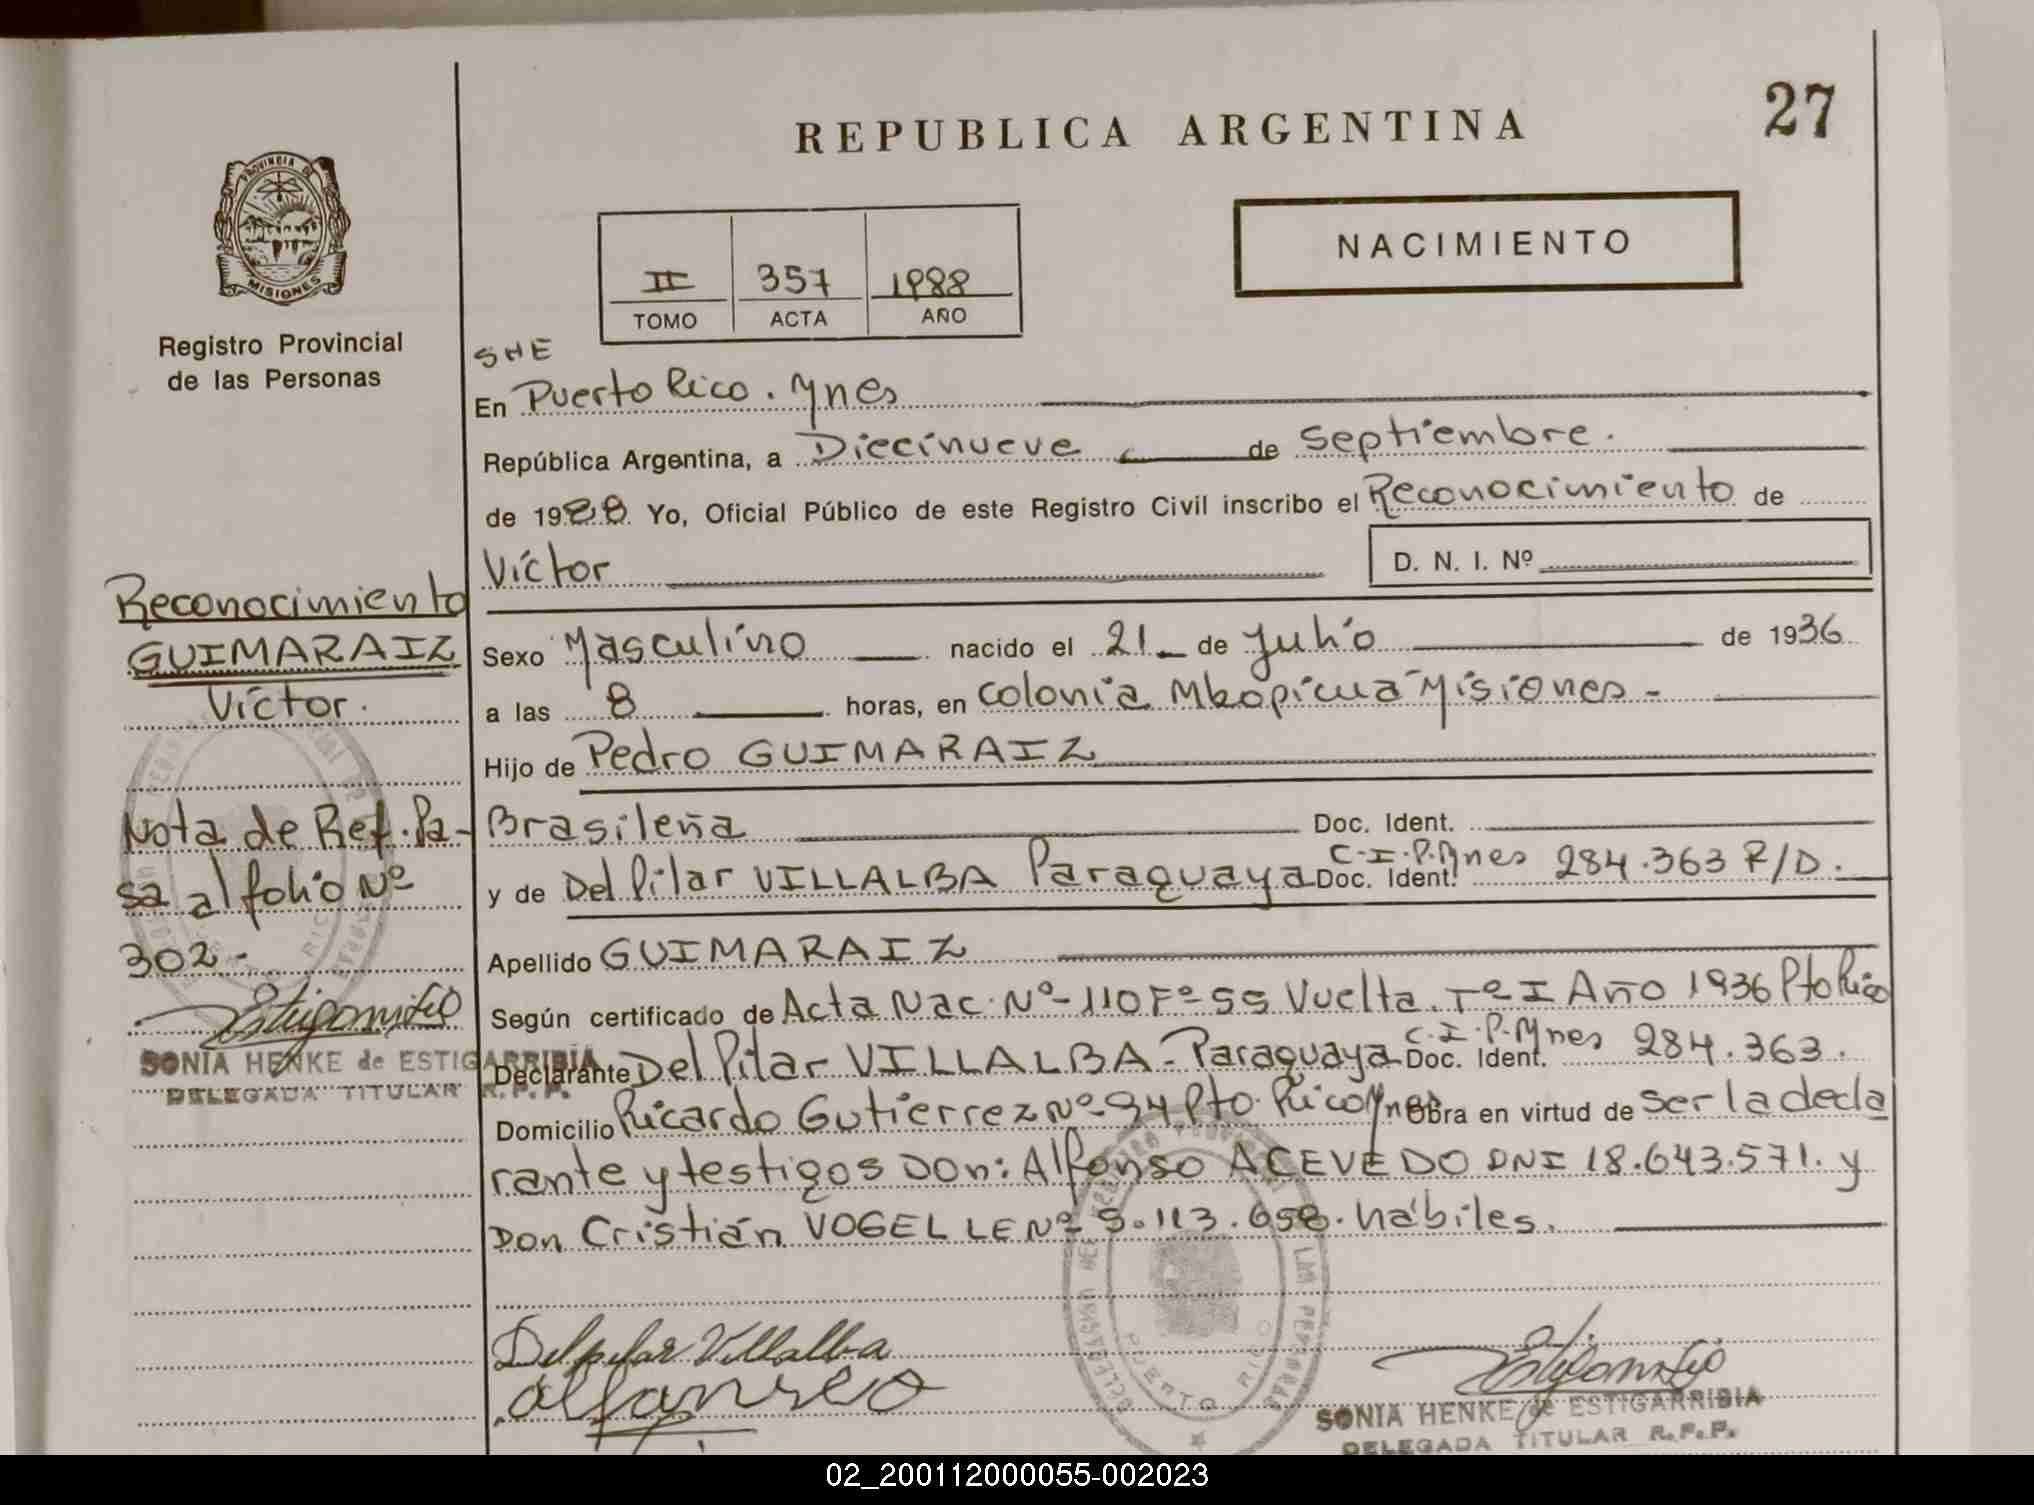 REPUBLICA ARGENTINA
27
PROVINCIA DE
MISIONES
Registro Provincial
de las Personas
II 357 1988
TOMO ACTA AÑO
NACIMIENTO
SHE
En Puerto Rico. Mnes
República Argentina, a Diecinueve de Septiembre.
de 1988 Yo, Oficial Público de este Registro Civil inscribo el Reconocimiento de
Víctor
D. N. I. Nº
Sexo Masculino nacido el 21 de Julio de 1936
a las 8 horas, en Colonia Mbopicua Misiones -
Hijo de Pedro GUIMARAIZ
Brasileña Doc. Ident.
y de Del Pilar VILLALBA Paraguaya Doc. Ident. C.I.P.Mnes 284.363 R/D.
Apellido GUIMARAIZ
Según certificado de Acta Nac. Nº 110 Fº 55 Vuelta. Tº I Año 1936 Pto Rico
Declarante Del Pilar VILLALBA - Paraguaya Doc. Ident. C.I.P.Mnes 284.363.
Domicilio Ricardo Gutierrez Nº 94 Pto. Rico Mnes Obra en virtud de ser la decla
rante y testigos Don: Alfonso ACEVEDO DNI 18.643.571. y
Don Cristián VOGEL LE Nº 9.113.658. hábiles.
Delpilar Villalba
SONIA HENKE de ESTIGARRIBIA
DELEGADA TITULAR R.P.P.
PUERTO RICO
Reconocimiento
GUIMARAIZ
Víctor.
Nota de Ref. Pa-
sa al folio Nº
302-
SONIA HENKE de ESTIGARRIBIA
DELEGADA TITULAR R.P.P.
02_200112000055-002023